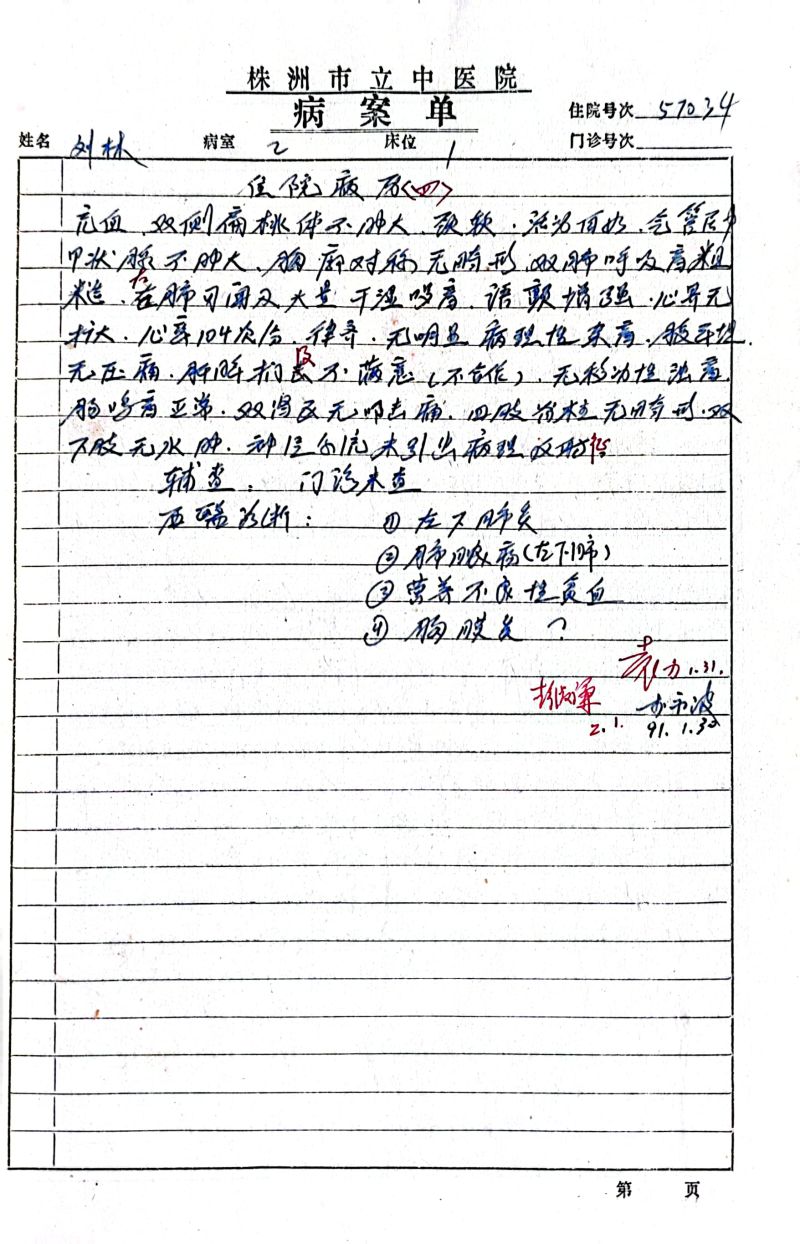 株洲市立中医院
病案单
住院号次 57034
姓名 刘林 病室 2 床位 1 门诊号次
住院病历<四>
充血、双侧扁桃体不肿大、颈软、活动自如、气管居中
甲状腺不肿大、胸廓对称无畸形、双肺呼吸音粗
糙、右肺可闻及大量干湿啰音、语颤增强、心界无
扩大、心率104次/分、律齐、无明显病理性杂音、腹平坦、
无压痛、肝脾扪及不满意(不合作)、无移动性浊音、
肠鸣音正常、双肾区无叩击痛、四肢脊柱无畸形、双
下肢无水肿、神经系统未引出病理反射征
辅查: 门诊未查
西医诊断: ①左下肺炎
②肺脓疡(左下肺)
③营养不良性贫血
④胸膜炎?
袁力 1.31.
2.1. 91.1.30
第 页